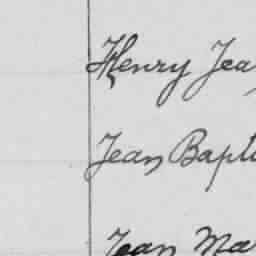 Henry Jea
Jean Bapti
Jean Ma